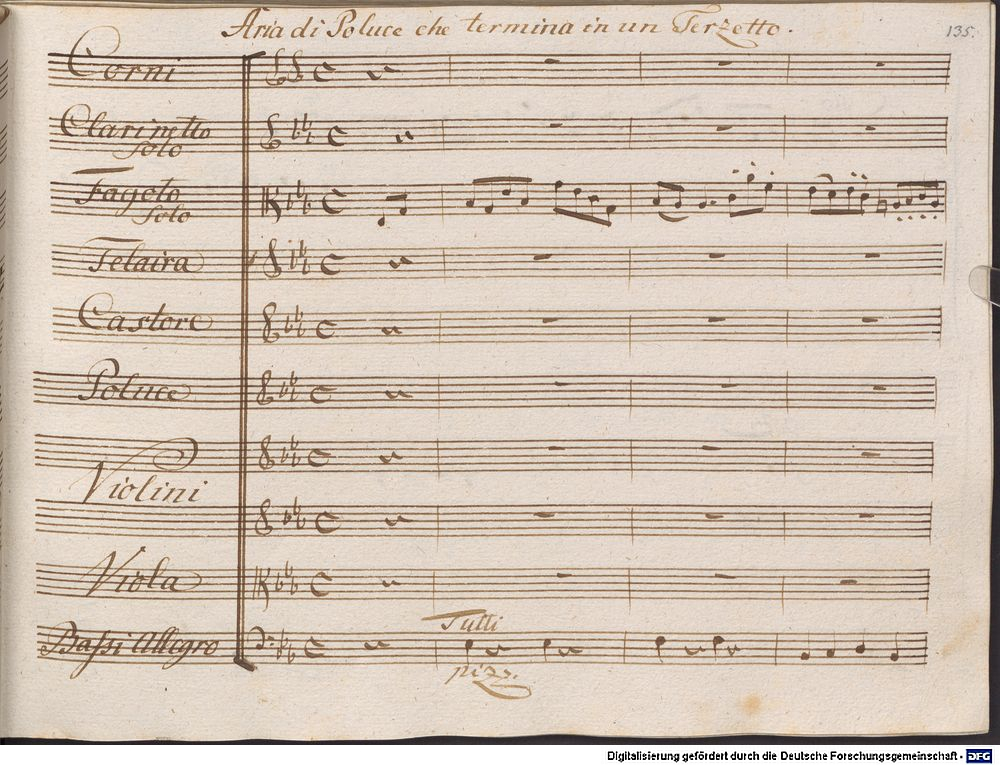 Aria di Poluce che termina in un Terzetto.
135.
Corni
Clarinetto
Solo
Fagoto
Solo
Telaira
Castore
Poluce
Violini
Viola
Tutti
Baſsi Allegro
pizz.
Digitalisierung gefördert durch die Deutsche Forschungsgemeinschaft - DFG